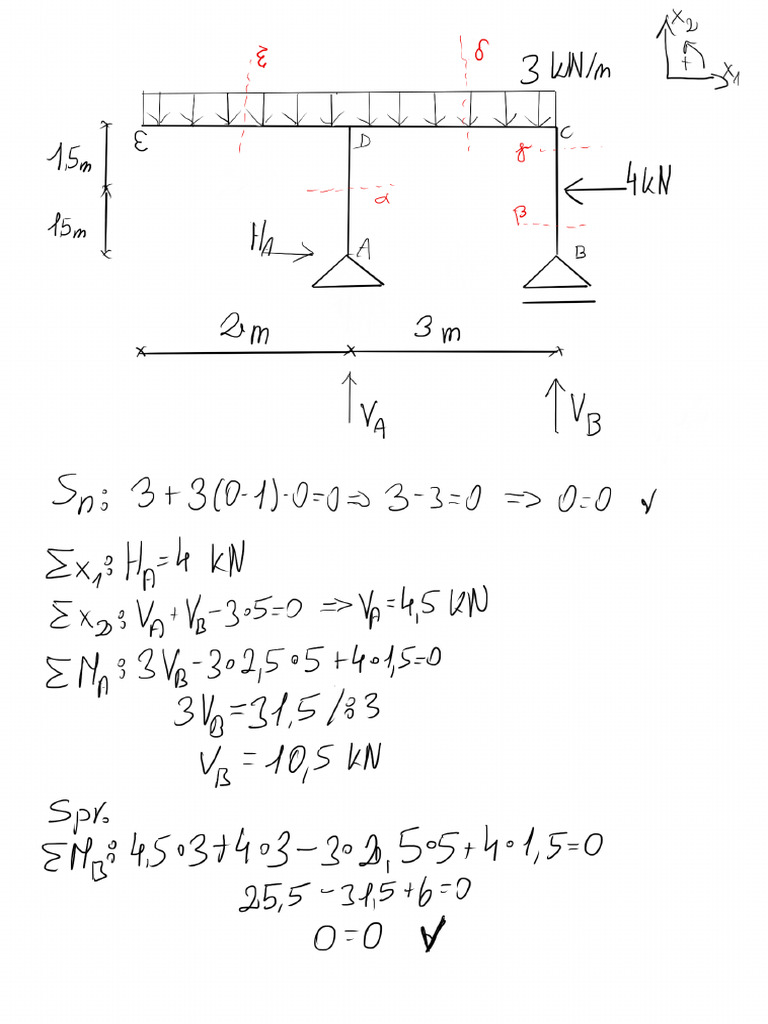 ε δ 3 kN/m x₂
+ x₁
ε D C
γ
1,5m
α 4kN
β
15m
H_A A B
2m 3m
V_A V_B
Sn: 3+3(0-1)-0=0 => 3-3=0 => 0=0 ✓
Σx₁: H_A=4 kN
Σx₂: V_A+V_B-3·5=0 => V_A=4,5 kN
ΣM_A: 3V_B-3·2,5·5+4·1,5=0
3V_B=31,5 /:3
V_B=10,5 kN
Spr.
ΣM_B: 4,5·3+4·3-3·2,5·5+4·1,5=0
25,5-31,5+6=0
0=0 ✓